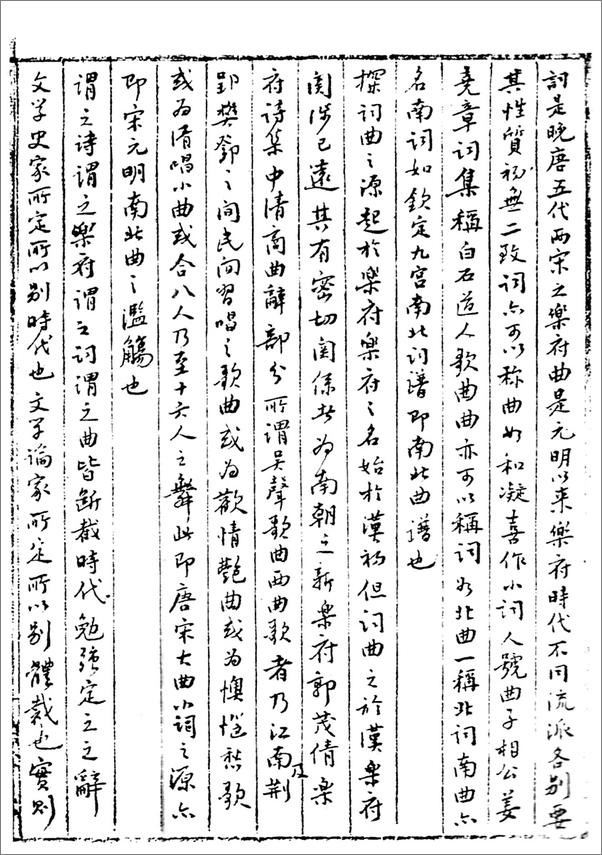 詞是晚唐五代两宋之樂府曲是元明以来樂府時代不同流派各别要
其性質初無二致詞亦可以称曲如和凝喜作小词人號曲子相公姜
堯章词集稱白石道人歌曲曲亦可以稱词如北曲一稱北词南曲亦
名南词如欽定九宫南北词譜即南北曲譜也
探词曲之源起於樂府樂府之名始於漢初但词曲之於漢樂府
関涉已遠其有密切関係者为南朝之新樂府郭茂倩樂
府诗集中清商曲辭部分所谓吴聲歌曲西曲歌者乃江南及荆
郢樊鄧之间民间習唱之歌曲或为歡情艶曲或为懊惱愁歌
或为清唱小曲或合八人乃至十六人之舞此即唐宋大曲小词之源亦
即宋元明南北曲之濫觴也
谓之诗谓之樂府谓之词谓之曲皆断裁時代勉强定立之辭
文学史家所定所以别時代也文学论家所定所以别體裁也實则